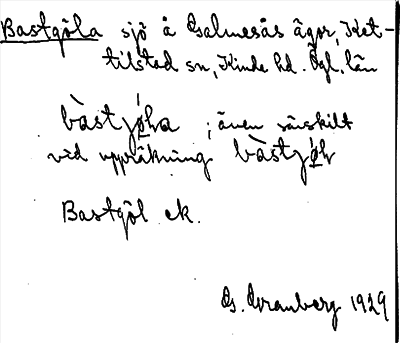 Bastgöla sjö å Salmesås ägor, Ket-
tilstad sn, Kinda hd. Ögl. län
bàstjǿla ; även särskilt
vid uppräkning bàstjǿl
Bastgöl ek.
G. Granberg 1929